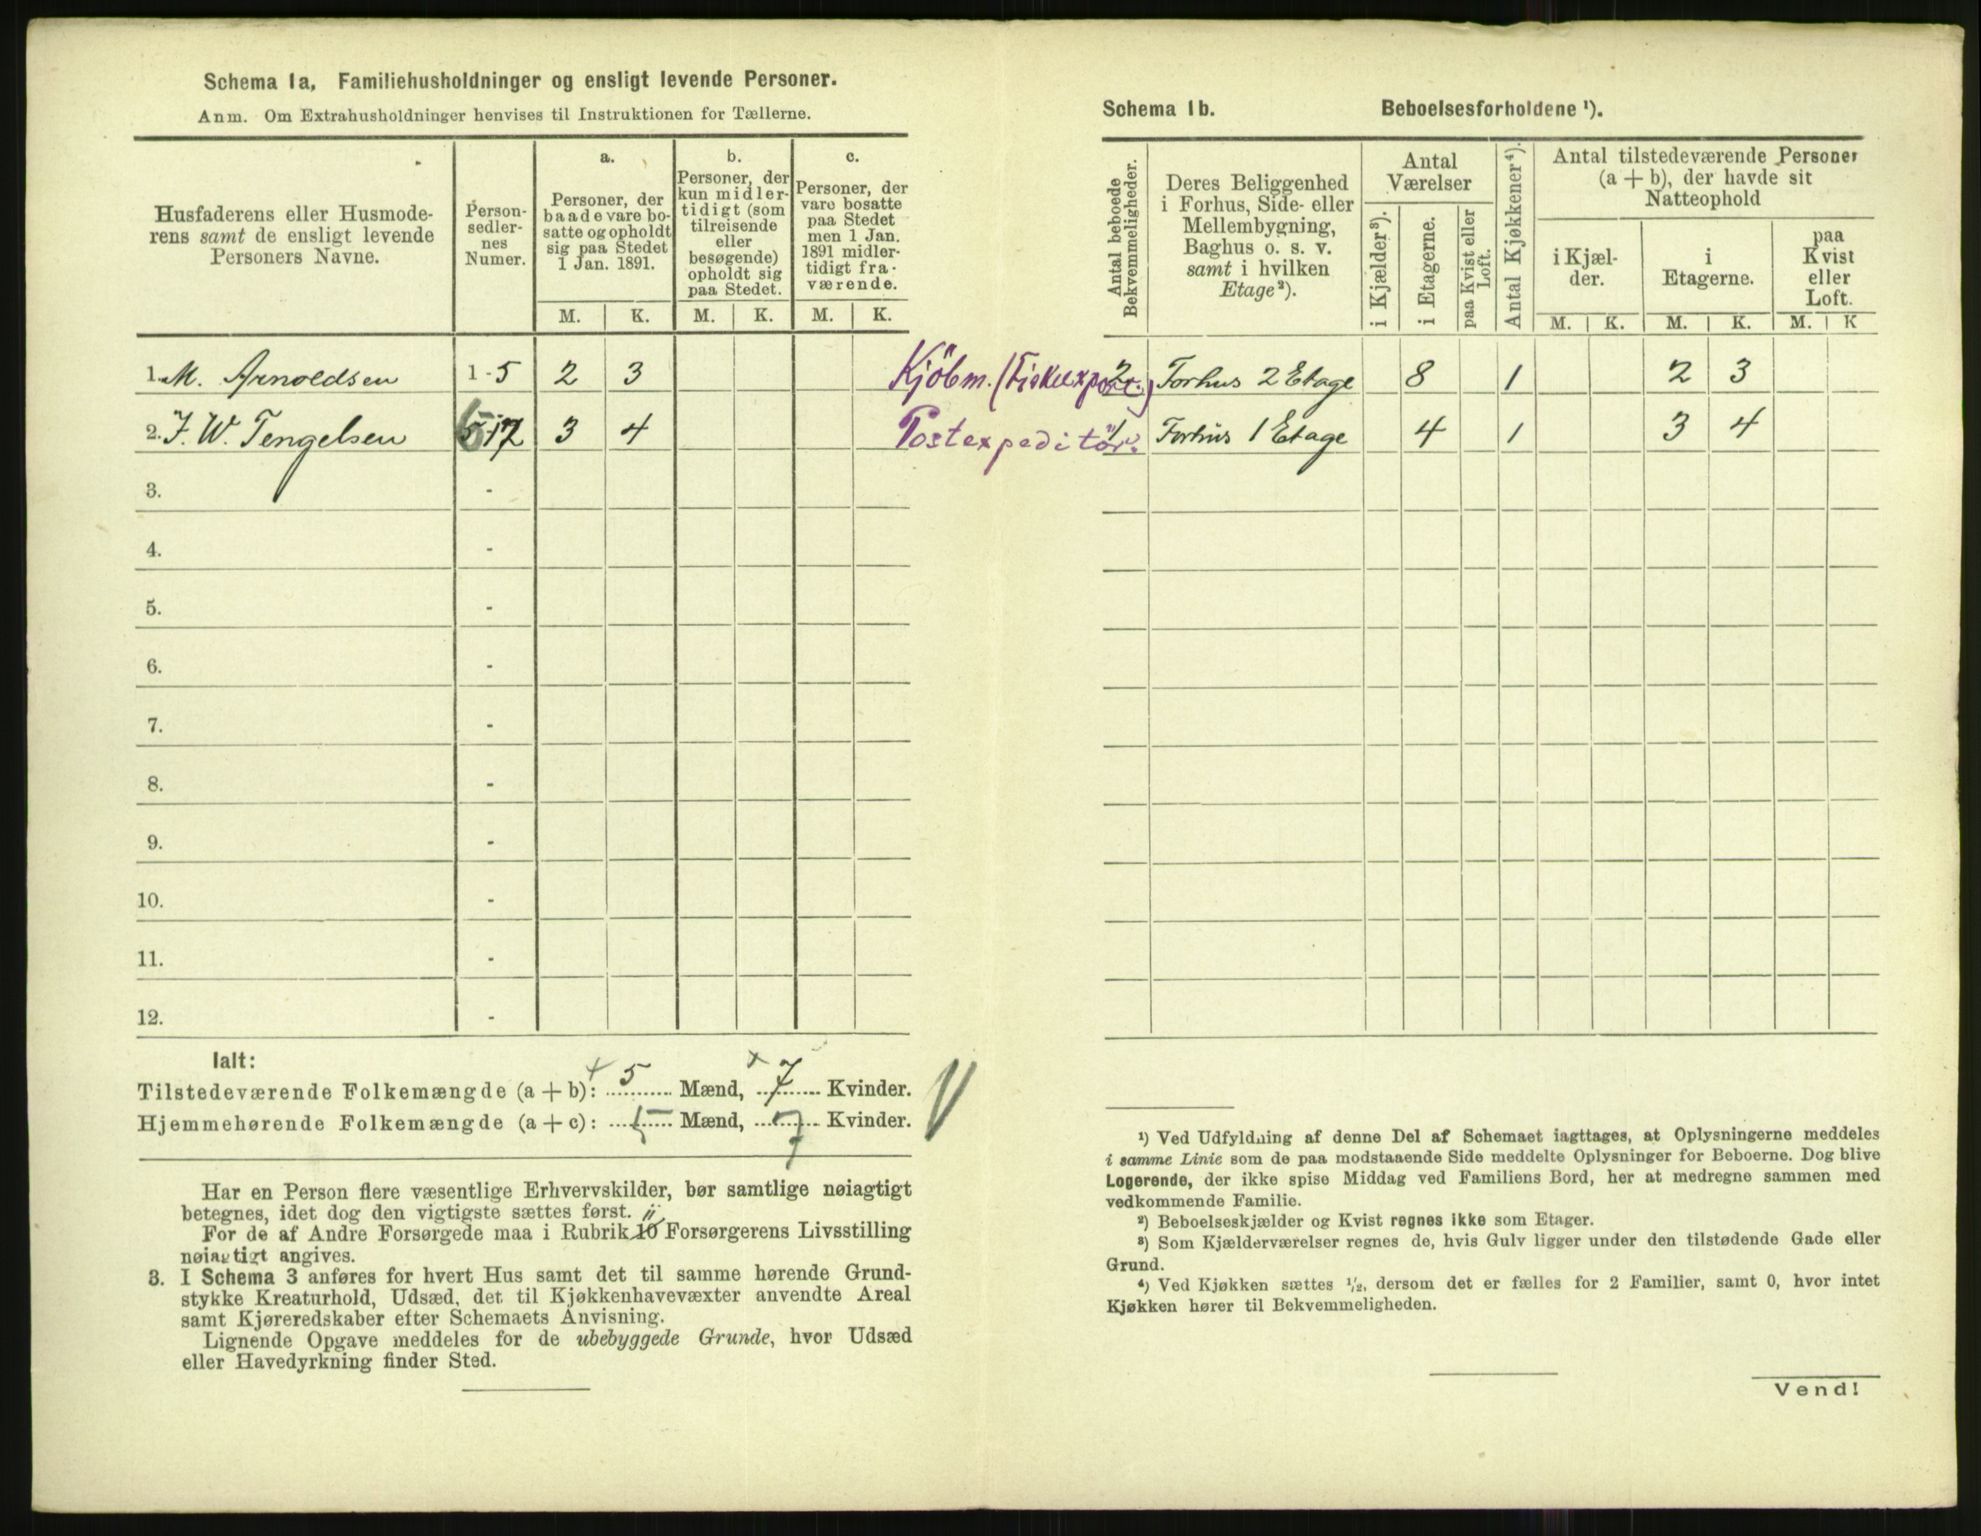 Schema 1a, Familiehusholdninger og ensligt levende Personer.
Anm. Om Extrahusholdninger henvises til Instruktionen for Tællerne.
Husfaderens eller Husmoderens samt de ensligt levende Personers Navne.
Personsedlernes Numer.
a.
Personer, der baade vare bosatte og opholdt sig paa Stedet 1 Jan. 1891.
b.
Personer, der kun midlertidigt (som tilreisende eller besøgende) opholdt sig paa Stedet.
c.
Personer, der vare bosatte paa Stedet men 1 Jan. 1891 midlertidigt fraværende.
M. K. M. K. M. K.
1. M. Arnoldsen 1 - 5 2 3
2. J. W. Tengelsen 3 4
3. -
4. -
5. -
6. -
7. -
8. -
9. -
10. -
11. -
12. -
Ialt:
Tilstedeværende Folkemængde (a + b): 5 Mænd, 7 Kvinder.
Hjemmehørende Folkemængde (a + c): 5 Mænd, 7 Kvinder.
Har en Person flere væsentlige Erhvervskilder, bør samtlige nøiagtigt
betegnes, idet dog den vigtigste sættes først.
For de af Andre Forsørgede maa i Rubrik 10 Forsørgerens Livsstilling
nøiagtigt angives.
3. I Schema 3 anføres for hvert Hus samt det til samme hørende Grund-
stykke Kreaturhold, Udsæd, det til Kjøkkenhavevæxter anvendte Areal
samt Kjøreredskaber efter Schemaets Anvisning.
Lignende Opgave meddeles for de ubebyggede Grunde, hvor Udsæd
eller Havedyrkning finder Sted.
Schema 1b. Beboelsesforholdene ¹).
Antal beboede Bekvemmeligheder.
Deres Beliggenhed i Forhus, Side- eller Mellembygning, Baghus o. s. v. samt i hvilken Etage²).
Antal Værelser
i Kjælder³).
i Etagerne.
paa Kvist eller Loft.
Antal Kjøkkener⁴).
Antal tilstedeværende Personer (a + b), der havde sit Natteophold
i Kjælder.
i Etagerne.
paa Kvist eller Loft.
M. K. M. K. M. K
Kjöbm. (Fiskeexport.) 2 Forhus 2 Etage 8 1 2 3
Postexpeditör. 1 Forhus 1 Etage 4 1 3 4
¹) Ved Udfyldning af denne Del af Schemaet iagttages, at Oplysningerne meddeles
i samme Linie som de paa modstaaende Side meddelte Oplysninger for Beboerne. Dog blive
Logerende, der ikke spise Middag ved Familiens Bord, her at medregne sammen med
vedkommende Familie.
²) Beboelseskjælder og Kvist regnes ikke som Etager.
³) Som Kjælderværelser regnes de, hvis Gulv ligger under den tilstødende Gade eller
Grund.
⁴) Ved Kjøkken sættes ½, dersom det er fælles for 2 Familier, samt 0, hvor intet
Kjøkken hører til Bekvemmeligheden.
Vend!